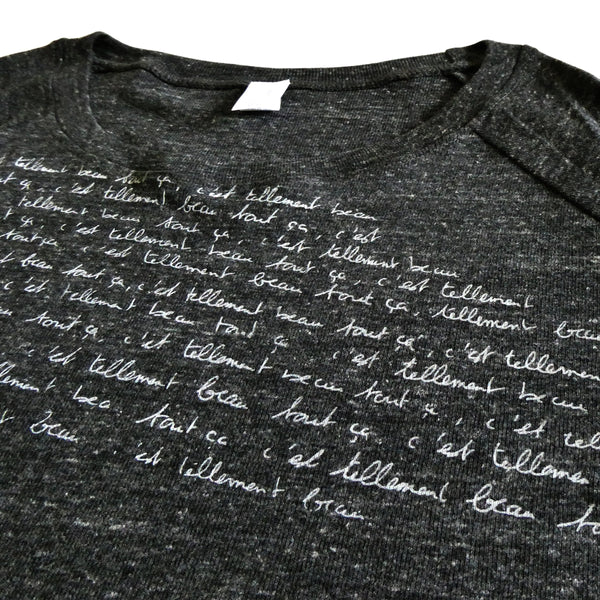 tellement beau tout ça, c'est tellement beau
ça, c'est tellement beau tout ça, c'est
tellement beau tout ça, c'est tellement beau
tout ça, c'est tellement beau tout ça, c'est tellement
tout ça, c'est tellement beau tout ça, tellement beau
beau tout ça, c'est tellement beau tout ça, c'est tellement
c'est tellement beau tout ça c'est tellement beau
tout ça, c'est tellement beau tout ça, c'est
c'est tellement beau tout ça, c'est tellement
tellement beau tout ça c'est tellement beau
beau c'est tellement beau